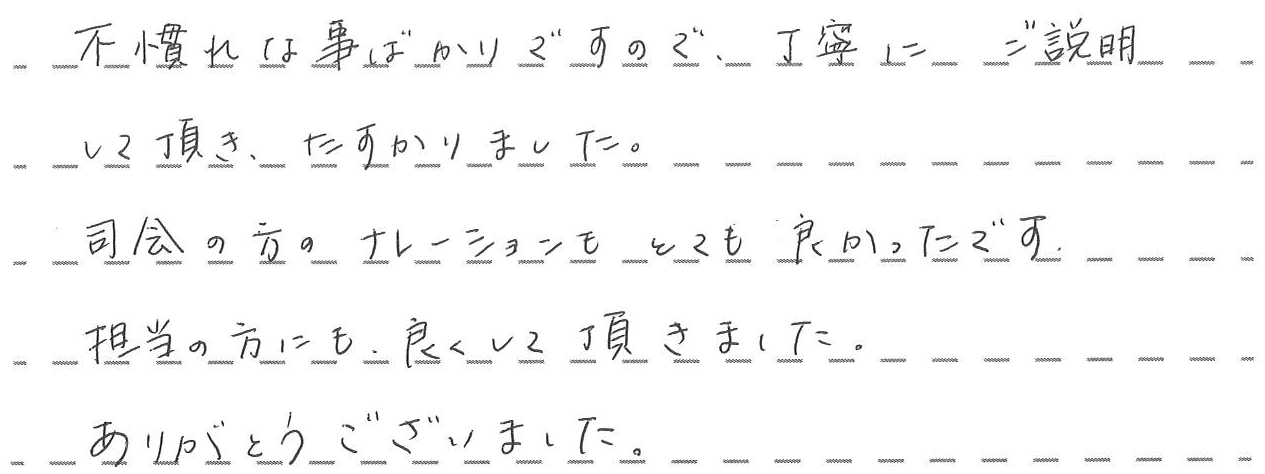 不慣れは事ばかりですので、丁寧に ご説明
して頂き、たすかりました。
司会の方の ナレーションも とても 良かったです.
担当の方にも、良くして頂きました。
ありがとうございました。